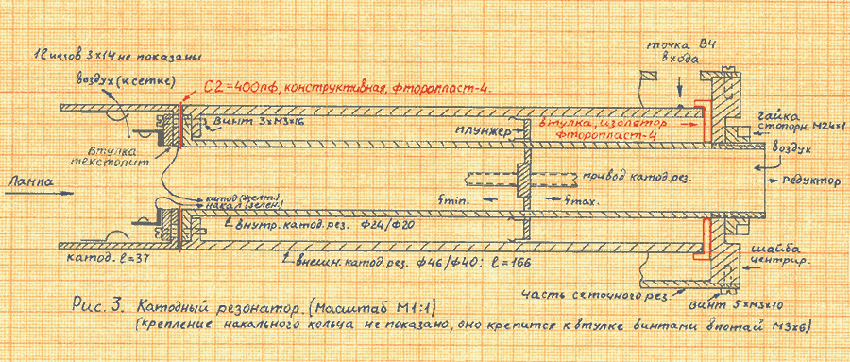 12 пазов 3х14 не показаны
воздух (к сетке)
С2=400пф, конструктивная, фторопласт-4.
точка ВЧ
входа
винт 3хМ3х16
плунжер
втулка, изолятор
фторопласт-4
гайка
стопорн. М24х1
втулка
текстолит
воздух
Лампа
катод (желт.)
накал (зелен.)
привод катод. рез.
редуктор
fmin.
fmax.
внутр. катод. рез. ф24/ф20
катод. ℓ=37
внешн. катод рез. ф46/ф40; ℓ=166
шайба
центрир.
часть сеточного рез.
винт 5хМ3х10
Рис. 3. Катодный резонатор. (Масштаб М1:1)
(крепление накального кольца не показано, оно крепится к втулке винтами впотай М3х6)